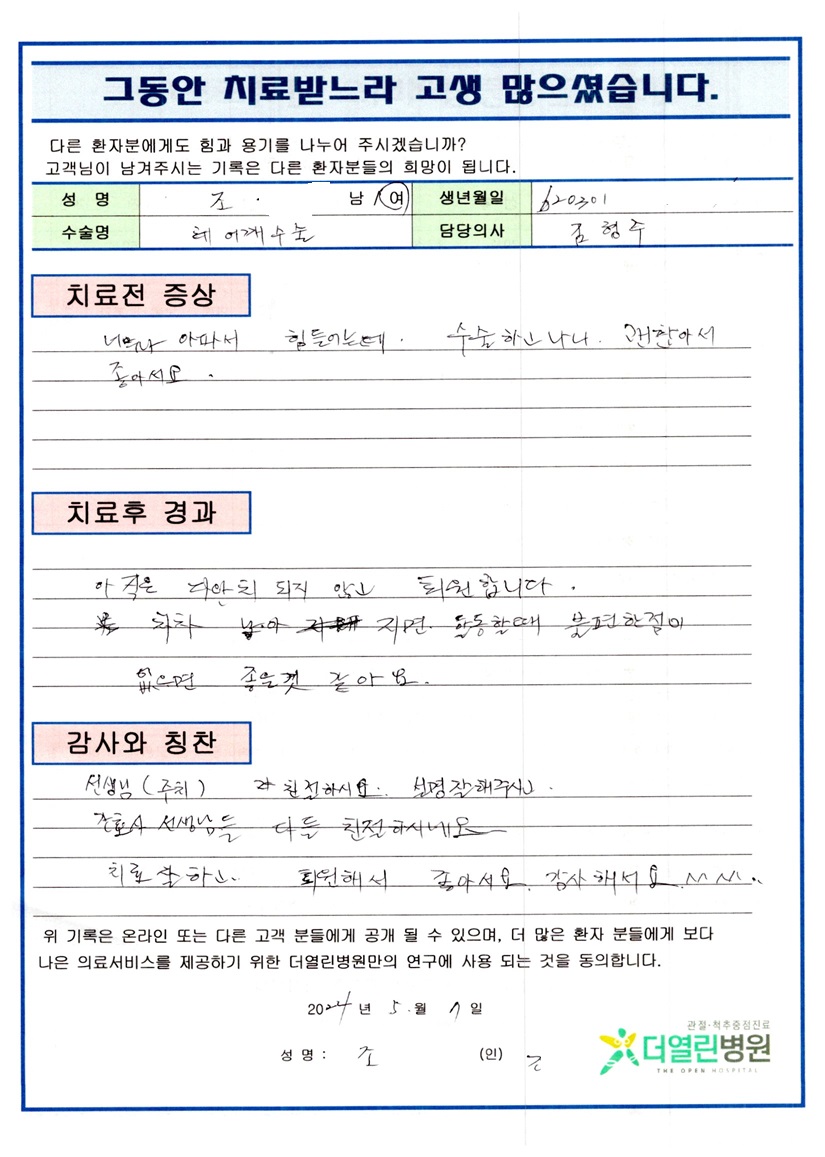 그동안 치료받느라 고생 많으셨습니다.
다른 환자분에게도 힘과 용기를 나누어 주시겠습니까?
고객님이 남겨주시는 기록은 다른 환자분들의 희망이 됩니다.
성 명 조 · 남 / 여 생년월일 620301
수술명 어깨수술 담당의사 김형주
치료전 증상
너무나 아파서 힘들어는데. 수술하고나니. 괜찬아서
좋아서요.
치료후 경과
아직은 되지 않고 퇴원합니다.
차차 지면. 활동할때 불편한점이
없으면 좋을겟 같아요.
감사와 칭찬
선생님(주치) 친절하시요. 설명잘해주시고.
간호사 선생님들 다들 친절하시네요
치료잘하고. 퇴원해서 좋아서요. 감사해서요.^^^^..
위 기록은 온라인 또는 다른 고객 분들에게 공개 될 수 있으며, 더 많은 환자 분들에게 보다
나은 의료서비스를 제공하기 위한 더열린병원만의 연구에 사용 되는 것을 동의합니다.
2024년 5.월 일
관절·척추중점진료
성 명 : 조 (인)
더열린병원
THE OPEN HOSPITAL